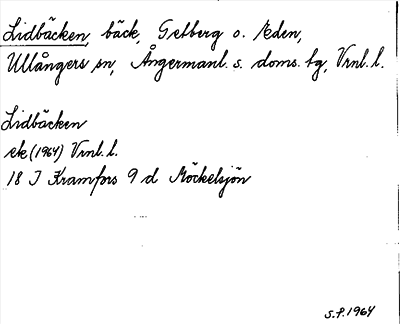 Lidbäcken, bäck, Getberg o. Eden,
Ullångers sn, Ångermanl. s. doms. tg, Vrnl. l.
Lidbäcken
ek (1964) Vrnl. l.
18 J Kramfors 9 d Möckelsjön
S.P. 1964